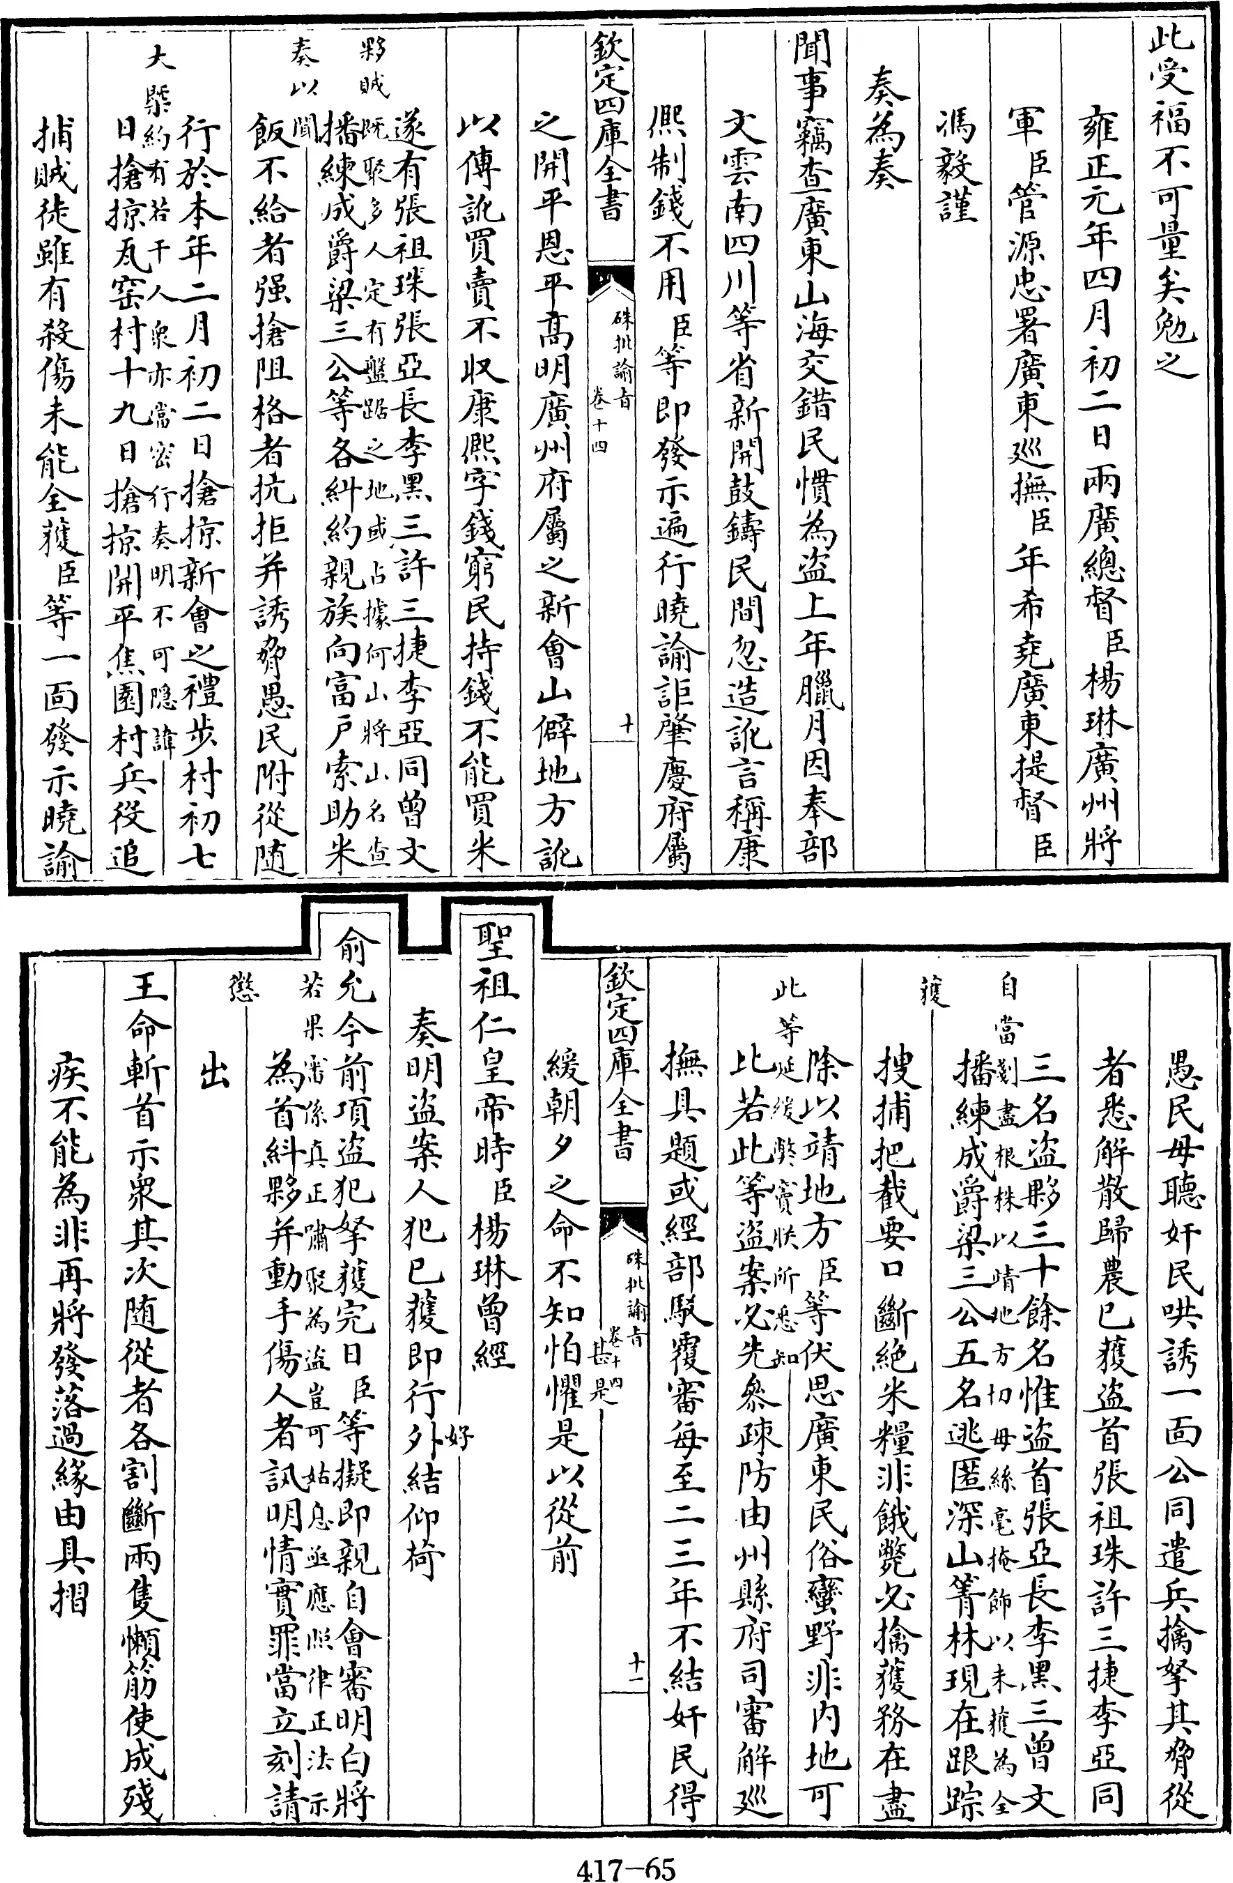 此受福不可量矣勉之
雍正元年四月初二日兩廣總督臣楊琳廣州將
軍臣管源忠署廣東巡撫臣年希堯廣東提督臣
馮毅謹
奏為奏
聞事竊查廣東山海交錯民慣為盜上年臘月因奉部
文雲南四川等省新開鼓鑄民間忽造訛言稱康
熙制錢不用臣等即發示遍行曉諭詎肇慶府屬
欽定四庫全書
硃批諭旨
卷十四
十
之開平恩平高明廣州府屬之新會山僻地方訛
以傳訛買賣不收康熙字錢窮民持錢不能買米
遂有張祖珠張亞長李黑三許三捷李亞同曾文
夥賊既聚多人定有盤踞之地或占據何山將山名查
播練成爵梁三公等各糾約親族向富戶索助米
奏以聞
飯不給者强搶阻格者抗拒并誘脅愚民附從随
行於本年二月初二日搶掠新會之禮步村初七
大槩約有若干人衆亦當密行奏明不可隱諱
日搶掠瓦窑村十九日搶掠開平焦園村兵役追
捕賊徒雖有殺傷未能全獲臣等一面發示曉諭
愚民毋聽奸民哄誘一面公同遣兵擒拏其脅從
者悉解散歸農已獲盜首張祖珠許三捷李亞同
三名盜夥三十餘名惟盜首張亞長李黑三曾文
自當剗盡根株以靖地方切毋絲毫掩飾以未獲為全
播練成爵梁三公五名逃匿深山箐林現在跟踪
獲
搜捕把截要口斷絶米糧非餓斃必擒獲務在盡
除以靖地方臣等伏思廣東民俗蠻野非内地可
此等延緩弊竇朕所悉知
比若此等盜案必先叅疎防由州縣府司審解巡
撫具題或經部駁覆審每至二三年不結奸民得
欽定四庫全書
硃批諭旨
卷十四
十一
甚是
緩朝夕之命不知怕懼是以從前
聖祖仁皇帝時臣楊琳曾經
好
奏明盜案人犯已獲即行外結仰荷
俞允今前項盜犯拏獲完日臣等擬即親自會審明白將
若果審係真正嘯聚為盜豈可姑息亟應照律正法示
為首糾夥并動手傷人者訊明情實罪當立刻請
懲
出
王命斬首示衆其次随從者各割斷兩隻懶筋使成殘
疾不能為非再將發落過緣由具摺
417-65